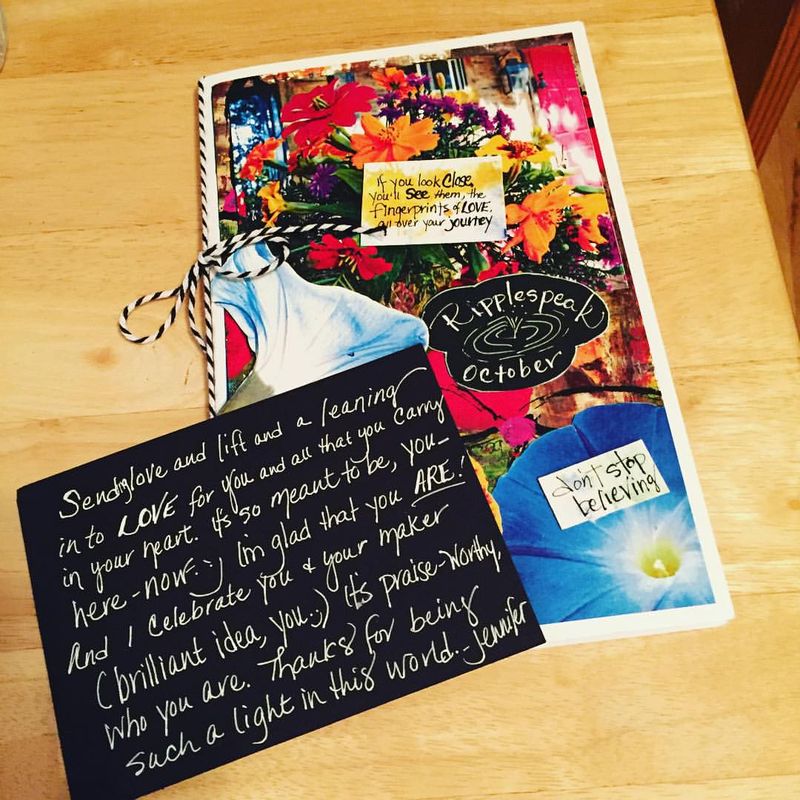 if you look Close,
you'll See them, the
fingerprints of LOVE,
all over your journey
Ripplespeak
october
don't stop
believing
Sendiglove and lift and a leaning
in to LOVE for you and all that you carry
in your heart. It's so meant to be, you-
here-now :) I'm glad that you ARE!
And I celebrate you & your maker
(brilliant idea, you :) It's praise-worthy,
who you are. Thanks for being
such a light in this world. -Jennifer